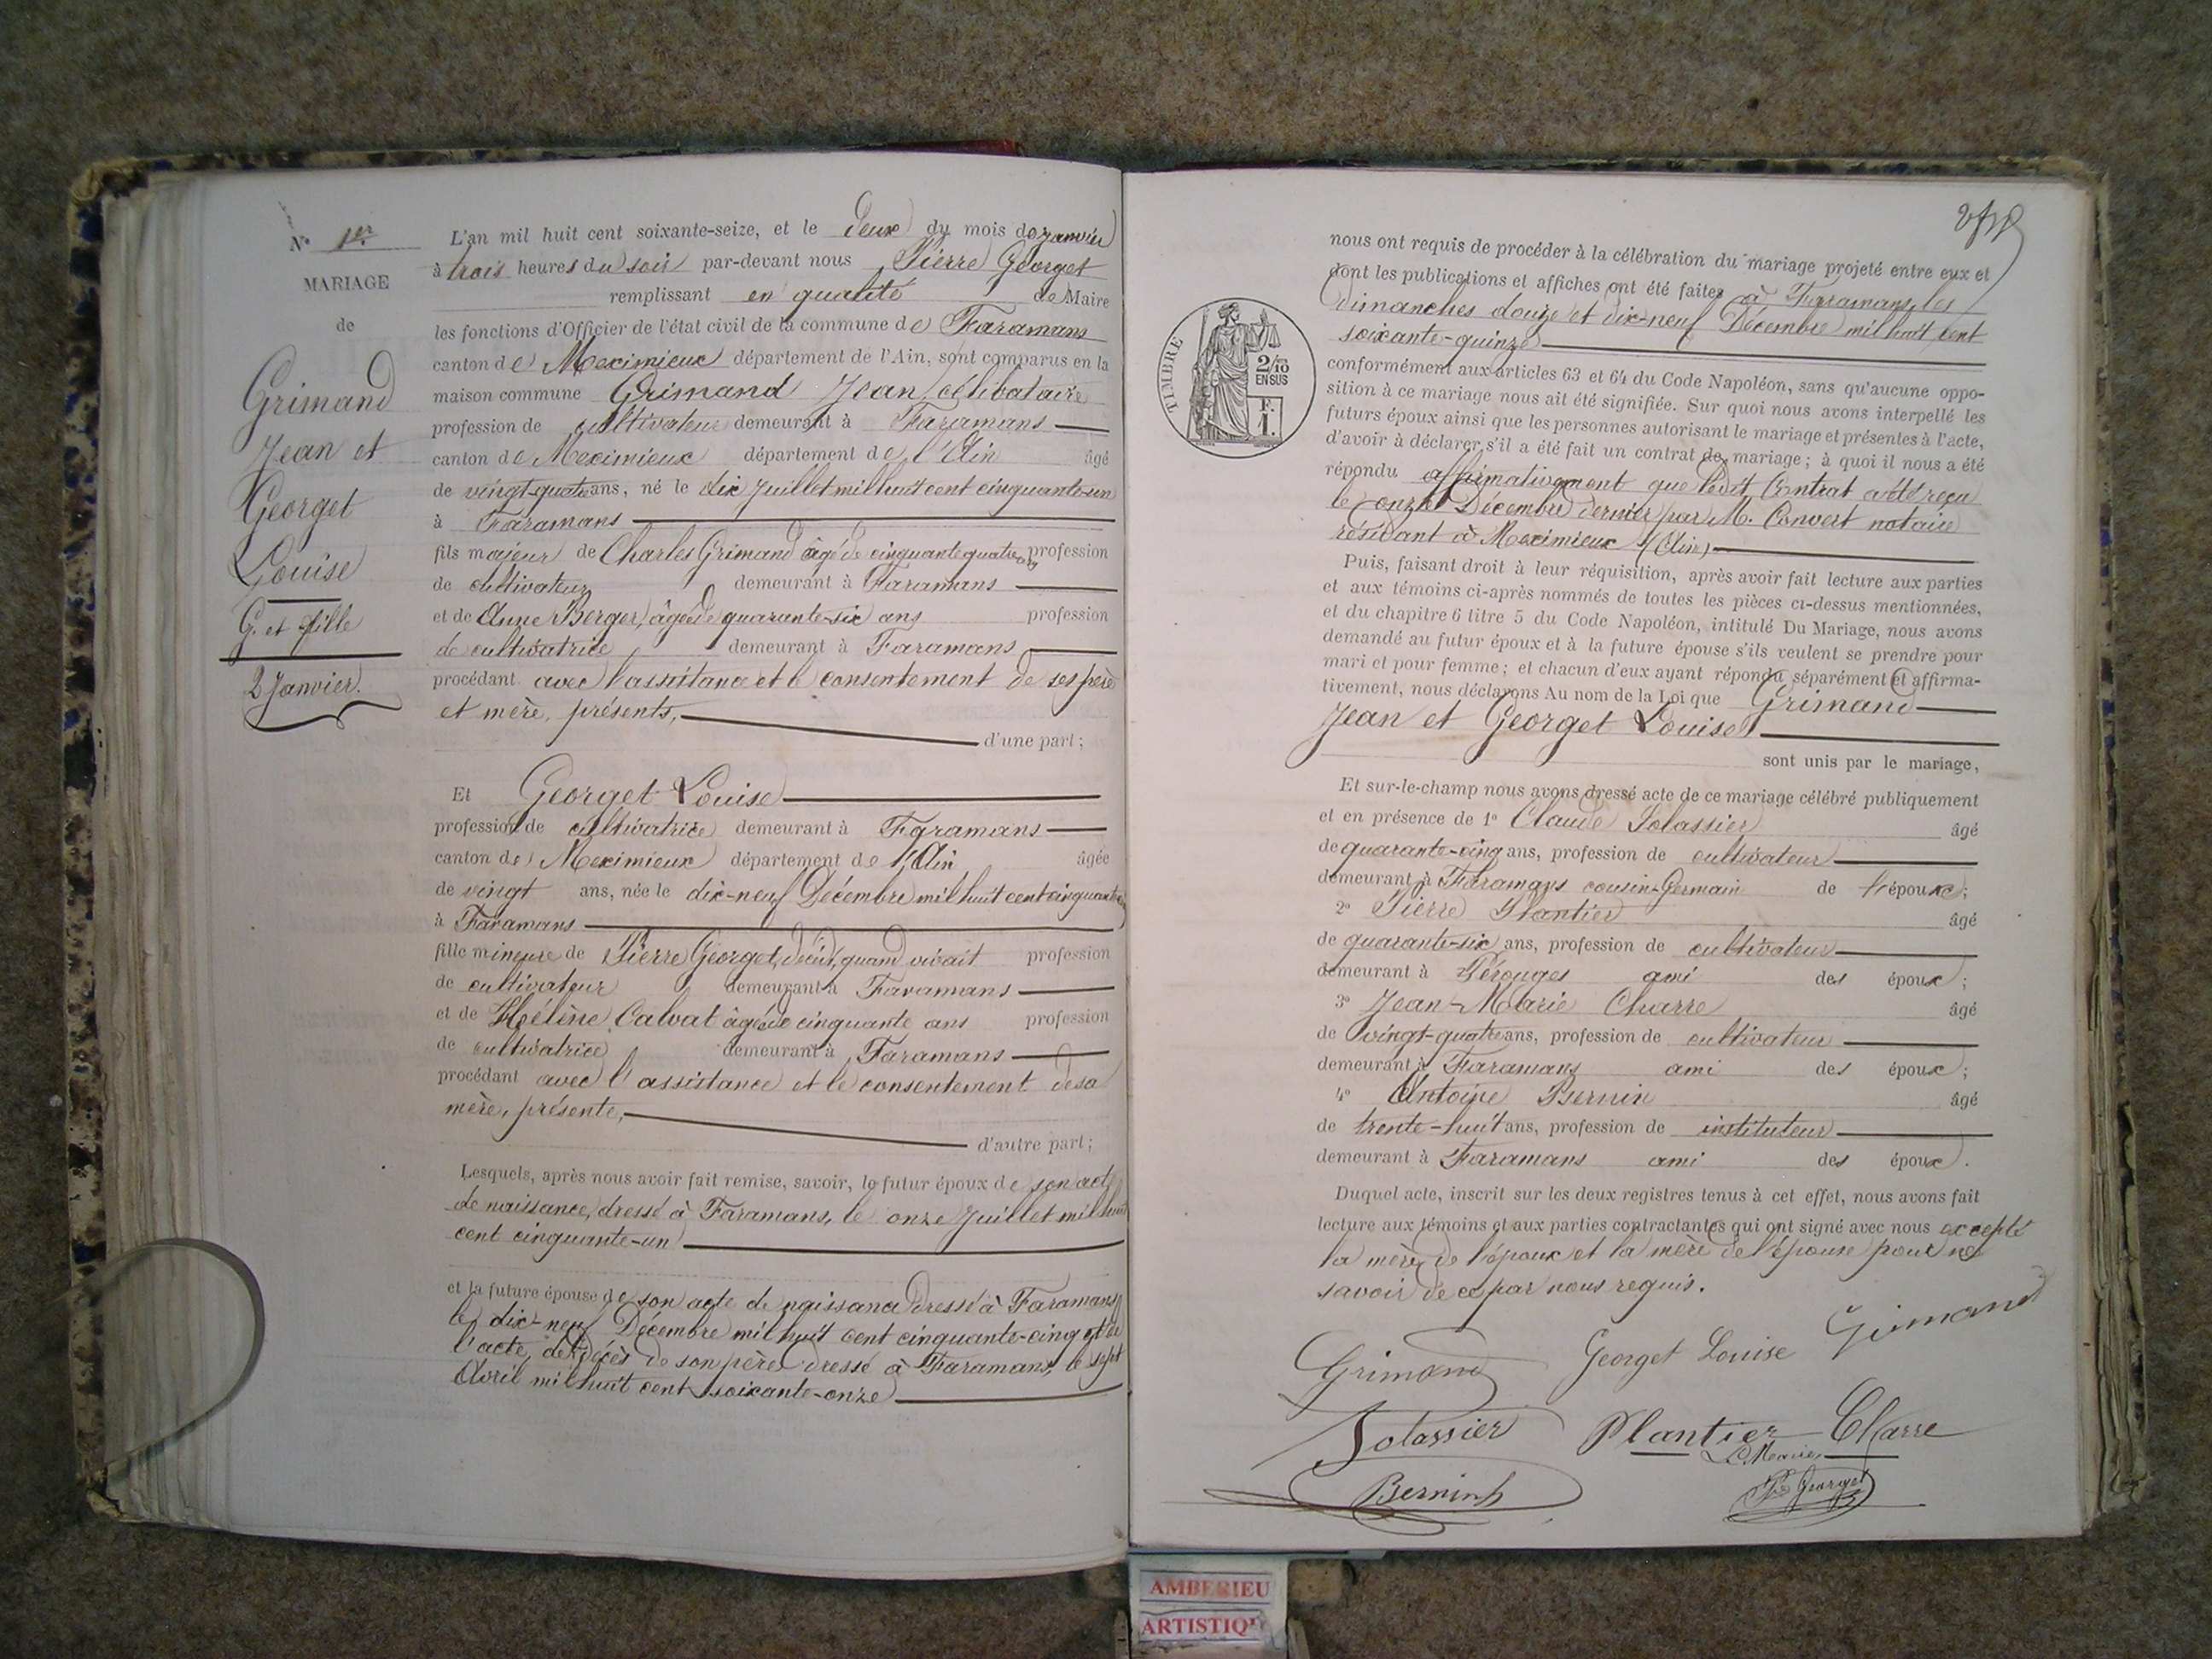 N° 1er
MARIAGE
de
Grimand
Jean et
Georget
Louise
G. et fille
2 Janvier.
L'an mil huit cent soixante-seize, et le deux du mois de janvier
à trois heures du soir par-devant nous Pierre Georget
remplissant en qualité de Maire
les fonctions d'Officier de l'état civil de la commune de Faramans
canton de Meximieux département de l'Ain, sont comparus en la
maison commune Grimand Jean, célibataire
profession de cultivateur demeurant à Faramans
canton de Meximieux département de l'Ain âgé
de vingt-quatre ans, né le dix Juillet mil huit cent cinquante-un
à Faramans
fils majeur de Charles Grimand âgé de cinquante quatre ans profession
de cultivateur demeurant à Faramans
et de Anne Berger, âgée de quarante-six ans profession
de cultivatrice demeurant à Faramans
procédant avec l'assistance et le consentement de ses père
et mère, présents,
d'une part;
Et Georget Louise
profession de cultivatrice demeurant à Faramans
canton de Meximieux département de l'Ain âgée
de vingt ans, née le dix-neuf Décembre mil huit cent cinquante
à Faramans
fille mineure de Pierre Georget, décédé, quand vivait profession
de cultivateur demeurant à Faramans
et de Hélène Calvat âgée de cinquante ans profession
de cultivatrice demeurant à Faramans
procédant avec l'assistance et le consentement de sa
mère, présente,
d'autre part;
Lesquels, après nous avoir fait remise, savoir, le futur époux de son acte
de naissance, dressé à Faramans, le onze Juillet mil huit
cent cinquante-un
et la future épouse de son acte de naissance dressé à Faramans
le dix-neuf Décembre mil huit cent cinquante-cinq et de
l'acte de décès de son père dressé à Faramans, le sept
Avril mil huit cent soixante-onze
nous ont requis de procéder à la célébration du mariage projeté entre eux et
dont les publications et affiches ont été faites à Faramans, les
dimanches douze et dix-neuf Décembre mil huit cent
soixante-quinze
TIMBRE
2/10
EN SUS
F.
1.
conformément aux articles 63 et 64 du Code Napoléon, sans qu'aucune oppo-
sition à ce mariage nous ait été signifiée. Sur quoi nous avons interpellé les
futurs époux ainsi que les personnes autorisant le mariage et présentes à l'acte,
d'avoir à déclarer s'il a été fait un contrat de mariage; à quoi il nous a été
répondu affirmativement que ledit Contrat a été reçu
le onze Décembre dernier par M. Convert notaire
résidant à Meximieux (Ain)
Puis, faisant droit à leur réquisition, après avoir fait lecture aux parties
et aux témoins ci-après nommés de toutes les pièces ci-dessus mentionnées,
et du chapitre 6 titre 5 du Code Napoléon, intitulé Du Mariage, nous avons
demandé au futur époux et à la future épouse s'ils veulent se prendre pour
mari et pour femme; et chacun d'eux ayant répondu séparément et affirma-
tivement, nous déclarons Au nom de la Loi que Grimand
Jean et Georget Louise
sont unis par le mariage,
Et sur-le-champ nous avons dressé acte de ce mariage célébré publiquement
et en présence de 1° Claude Jolassier âgé
de quarante-cinq ans, profession de cultivateur
demeurant à Faramans cousin-Germain de l'époux;
2° Pierre Plantier âgé
de quarante-six ans, profession de cultivateur
demeurant à Pérouges ami des époux;
3° Jean-Marie Charre âgé
de vingt-quatre ans, profession de cultivateur
demeurant à Faramans ami des époux;
4° Antoine Bernin âgé
de trente-huit ans, profession de instituteur
demeurant à Faramans ami des époux.
Duquel acte, inscrit sur les deux registres tenus à cet effet, nous avons fait
lecture aux témoins et aux parties contractantes qui ont signé avec nous excepté
la mère de l'époux et la mère de l'épouse pour ne
savoir de ce par nous requis.
Grimand Georget Louise Grimand
Jolassier Plantier Charre
Le Maire,
Bernin Pre Georget
AMBERIEU
ARTISTIQ